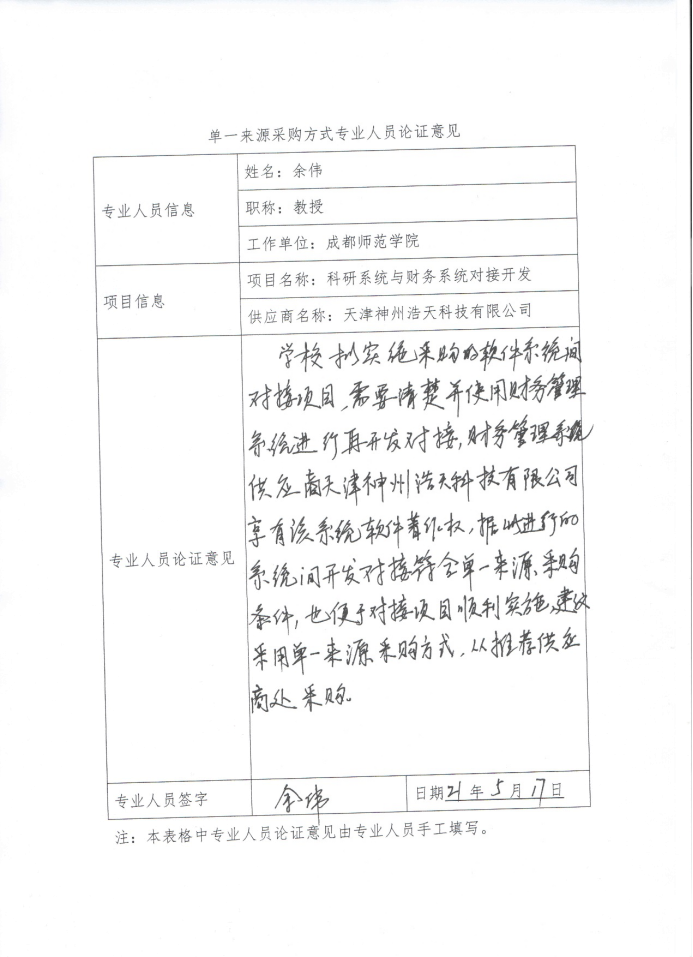 单一来源采购方式专业人员论证意见
专业人员信息
姓名：余伟
职称：教授
工作单位：成都师范学院
项目信息
项目名称：科研系统与财务系统对接开发
供应商名称：天津神州浩天科技有限公司
专业人员论证意见
学校拟实施采购的软件系统间
对接项目，需要清楚并使用财务管理
系统进行再开发对接，财务管理系统
供应商天津神州浩天科技有限公司
享有该系统软件著作权，据此进行的
系统间开发对接符合单一来源采购
条件，也便于对接项目顺利实施，建议
采用单一来源采购方式，从推荐供应
商处采购。
专业人员签字
余伟
日期21年5月17日
注：本表格中专业人员论证意见由专业人员手工填写。